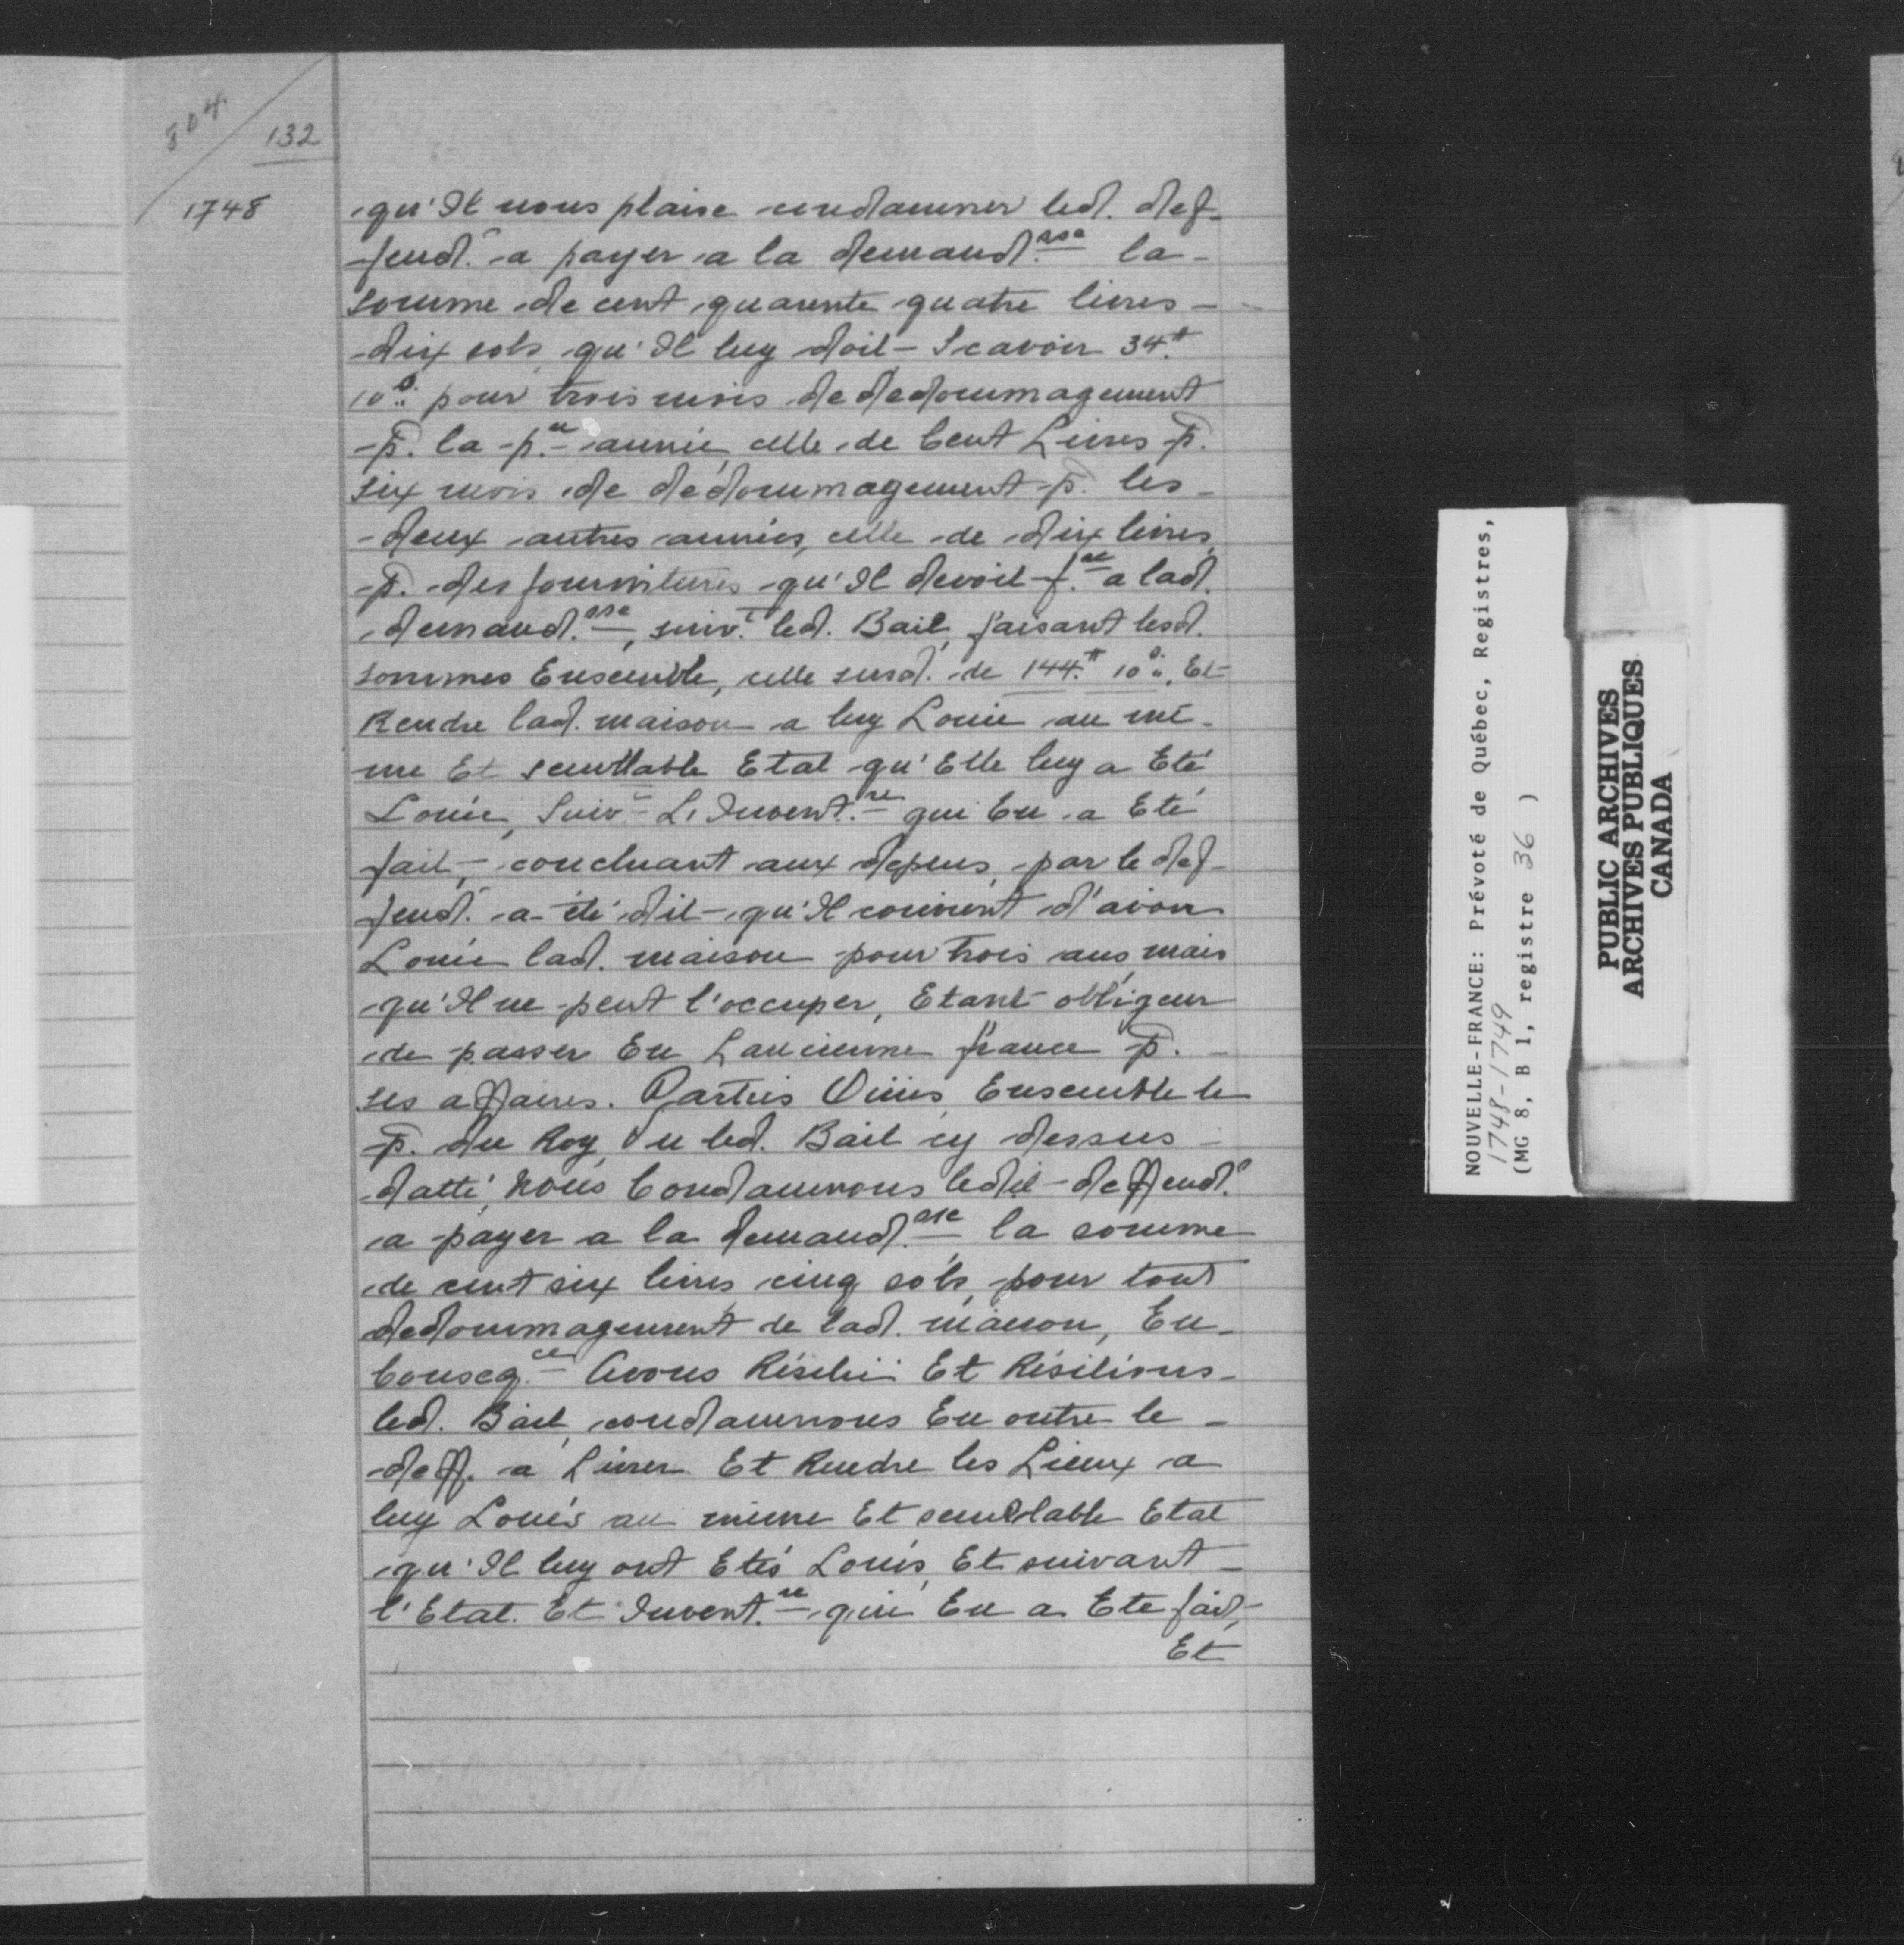 804
132
1748
qu'Il nous plaise condamner led. def-
fend.r a payer a la demand.sse la
somme de cent quarente quatre livres
dix sols, qu'Il luy doit Scavoir 34.#
10.s pour trois mois de dedommagement
p. la p.re année, celle de Cent Livres p.
six mois de dédommagement p. les
deux autres années, celle de dix livres
p. des fournitures qu'Il devoit f.re a lad.
demand.sse, suiv.t led. Bail, faisant lesd.
sommes Ensemble, celle susd. de 144.# 10.s, Et
Rendre lad. maison a luy Louée au mê-
me Et semblable Etat qu'Elle luy a Eté
Louée, Suiv.t L'Invent.re qui En a Eté
fait, concluant aux depens, par le def-
fend.r a été dit qu'Il convient d'avoir
Louée lad. maison pour trois ans, mais
qu'Il ne peut l'occuper, Etant obligeur
de passer En Lancienne france p.
ses affaires. Parties Ouies, Ensemble le
p. du Roy, Vu led. Bail cy dessus
datté, Nous Condamnons ledit deffend.r
a payer a la demand.sse la somme
de cent six livres cinq sols, pour tout
dedommagement de lad. maison, En
Conseq.ce Avons Résilié Et Résilions
led. Bail, condamnons En outre le
deff. a Livrer Et Rendre les Lieux a
luy Loués au même Et semblable Etat
qu'Il luy ont Etés Loués, Et suivant
l'Etat Et Invent.re qui En a Ete fait,
Et
NOUVELLE-FRANCE: Prévoté de Québec, Registres,
1748-1749
(MG 8, B 1, registre 36 )
PUBLIC ARCHIVES
ARCHIVES PUBLIQUES
CANADA